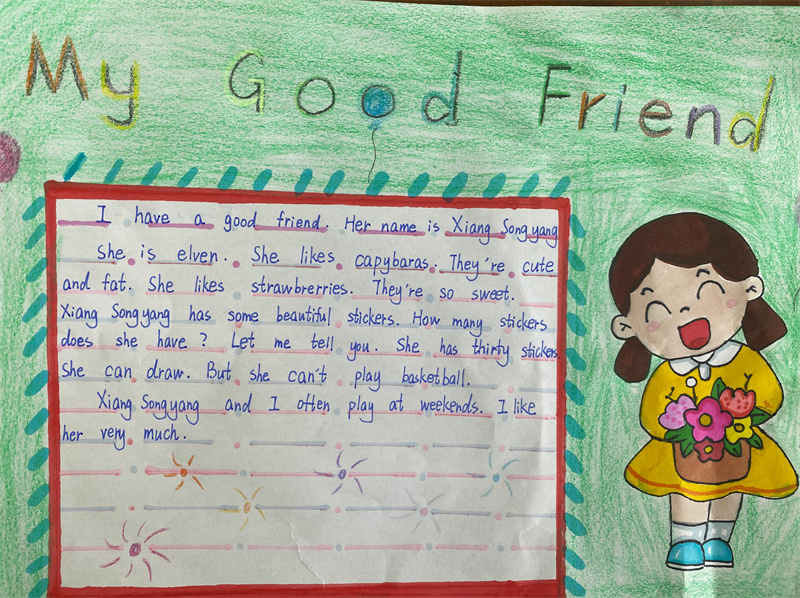 My Good Friend
I have a good friend. Her name is Xiang Songyang
She is elven. She likes capybaras. They're cute
and fat. She likes strawbrerries. They're so sweet.
Xiang Songyang has some beautiful stickers. How many stickers
does she have? Let me tell you. She has thirty stickers
She can draw. But she can't play basketball.
Xiang Songyang and I often play at weekends. I like
her very much.